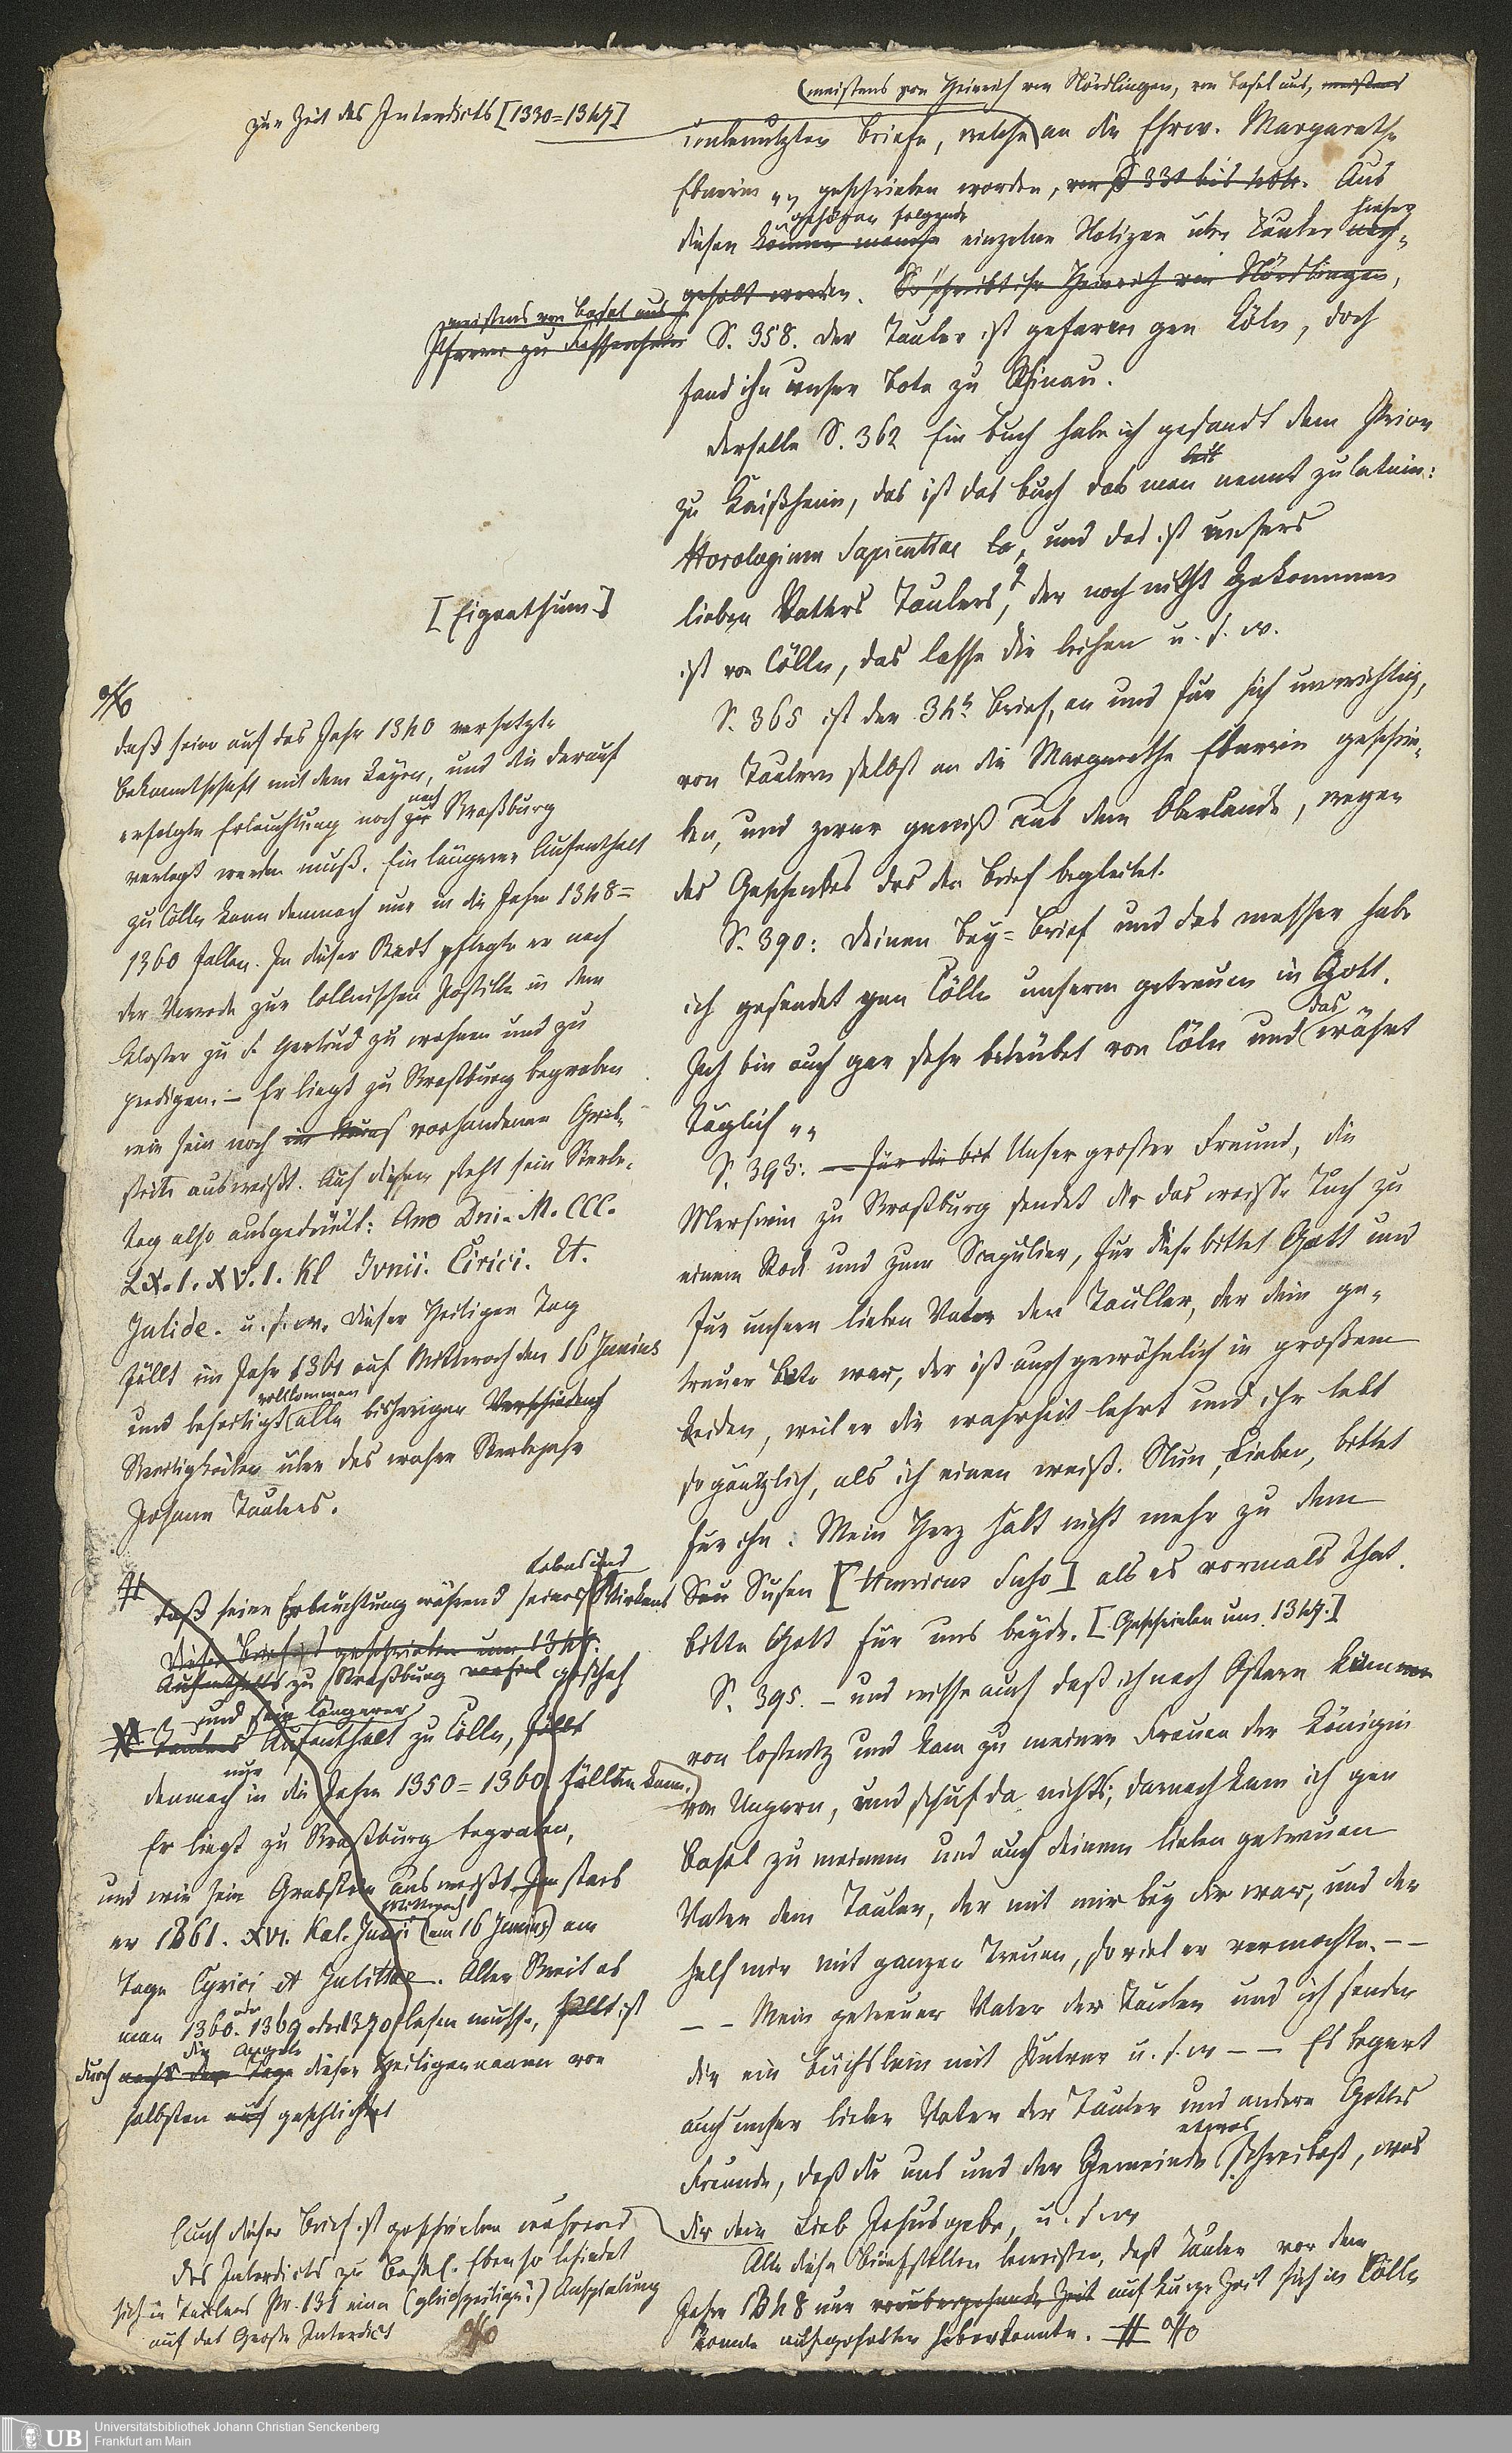 zur Zeit des Interdicts [1330=1347]
(meistens von Heinrich von Nördlingen, von Basel aus, meistens
unbenutzten Briefe, welche an die Ehrw. Margarethe
Ebnerin „„ geschrieben worden, von S 331 bis 404. Aus
gehören folgende
hieher
diesen können manche einzelne Notizen über Tauler
geholt werden. So schreibt ihr Heinrich von Nördlingen,
meistens von Basel aus
Pfarrer zu Fessenheim
S. 358. der Tauler ist gefaren gen Köln, doch
fand ihn unser Bote zu Rhinau.
derselbe S. 362 Ein Buch habe ich gesandt dem Prior
zu Kaißheim, das ist das Buch das man nennt zu latein:
Horologium Sapientiae, und das ist unsers
[Eigenthum?]
lieben Vatters Taulers, der noch nicht gekommen
ist von Cölln, das lasse dir leihen u. s. w.
S. 365 ist der 34te Brief, an und für sich unwichtig,
von Taulern selbst an die Margarethe Ebnerin geschrie-
ben, und zwar gewiß aus dem Oberlande, wegen
des Geschenkes das den Brief begleitet.
S. 390: Deinen Bey=Brief und das messer habe
ich gesendet gen Cölln unserm getreuen in Gott.
Ich bin auch gar sehr betrübet von Cöln und das währt
täglich „„
S. 393: — für die bit Unser großer Freund, die
Merswin zu Straßburg sendet dir das weisse Tuch zu
einem Rock und zum Scapulier, für diese bittet Gott und
für unsern lieben Vater den Tauller, der dein ge-
treuer Bote war, der ist auch gewöhnlich in großem
Leiden, weil er die wahrheit lehrt und ihr lebt
so gäntzlich, als ich einen weiß. Nun, Lieben, bittet
für ihn. Mein Herz hält nicht mehr zu dem
Sau Susen [Henricus Suso] als es vormals that.
bitte Gott für uns beyde. [Geschrieben um 1347.]
S. 395. – und wisse auch daß ich nach Ostern kumme
von Costentz und kam zu meiner Frauen der Königin
von Ungarn, und schuf da nichts; darnach kam ich gen
Basel zu meinem und auch deinem lieben getreuen
Vater dem Tauler, der mit mir bey dir war, und der
half mir mit ganzer Treuen, so viel er vermochte. – –
– – Mein getreuer Vater der Tauler und ich senden
dir ein Büchslein mit Pulver u. s. w – – Es begert
auch unser lieber Vater der Tauler und andere Gottes
etwas
Freunde, daß du uns und der Gemeinde schreibest, was
dir dein Lieb Jesus gebe, u. s. w
Alle diese Briefstellen beweisen, daß Tauler vor dem
Jahre 1348 nur vorübergehende Zeit auf kurze Zeit sich in Cölln
aufgehalten haben konnte. # %
%
daß seine auf das Jahr 1340 versetzte
Bekanntschaft mit dem Layen, und die darauf
nach
erfolgte Erleuchtung noch zu Straßburg
verlegt werden muß. Ein längerer Aufenthalt
zu Cölln kann demnach nur in die Jahre 1348=
1360 fallen. In dieser Stadt pflegte er nach
der Vorrede zur Cöllnischen Postille in dem
Kloster zu S. Gertrud zu wohnen und zu
predigen. – Er liegt zu Straßburg begraben
wie sein noch vorhandener Grab-
stein ausweißt. Auf diesem steht sein Sterbe-
tag also ausgedrückt: Ano Dni. M. CCC.
LX. I. XV. I. Kl Ivnii. Cirici. Et.
Julide. u. s. w. Dieser Heiligen Tag
fällt im Jahr 1361 auf Mittwoch den 16 Junius
vollkommen
und beseitigt alle bisherigen
Streitigkeiten über das wahre Sterbejahr
Johann Taulers.
#
Lebens und
daß seine Erleuchtung während seines Wirkens
Dieser Brief ist geschrieben um 1347.
Aufenthalts zu Straßburg geschah
und sein längerer
Taulers Aufenthalt zu Cölln, fällt
nur
demnach in die Jahre 1350=1360. fallen kann.
Er liegt zu Straßburg begraben,
und wie sein Grabstein ausweißt starb
Mittwoch
er 1361. XVI. Kal. Junii (am 16 Junius) am
Tage Cyrici et Julittae. Aller Streit ob
oder
man 1360. 1369 oder 1370 lesen müsse, ist
die Angabe
durch dieser Heiligennamen von
selbsten geschlichtet
Auch dieser Brief ist geschrieben während
des Interdicts zu Basel. Ebenso befindet
sich in Taulers Pr. 131 eine (gleichzeitige?) Anspielung
auf das Große Interdict
%
UB
Universitätsbibliothek Johann Christian Senckenberg
Frankfurt am Main